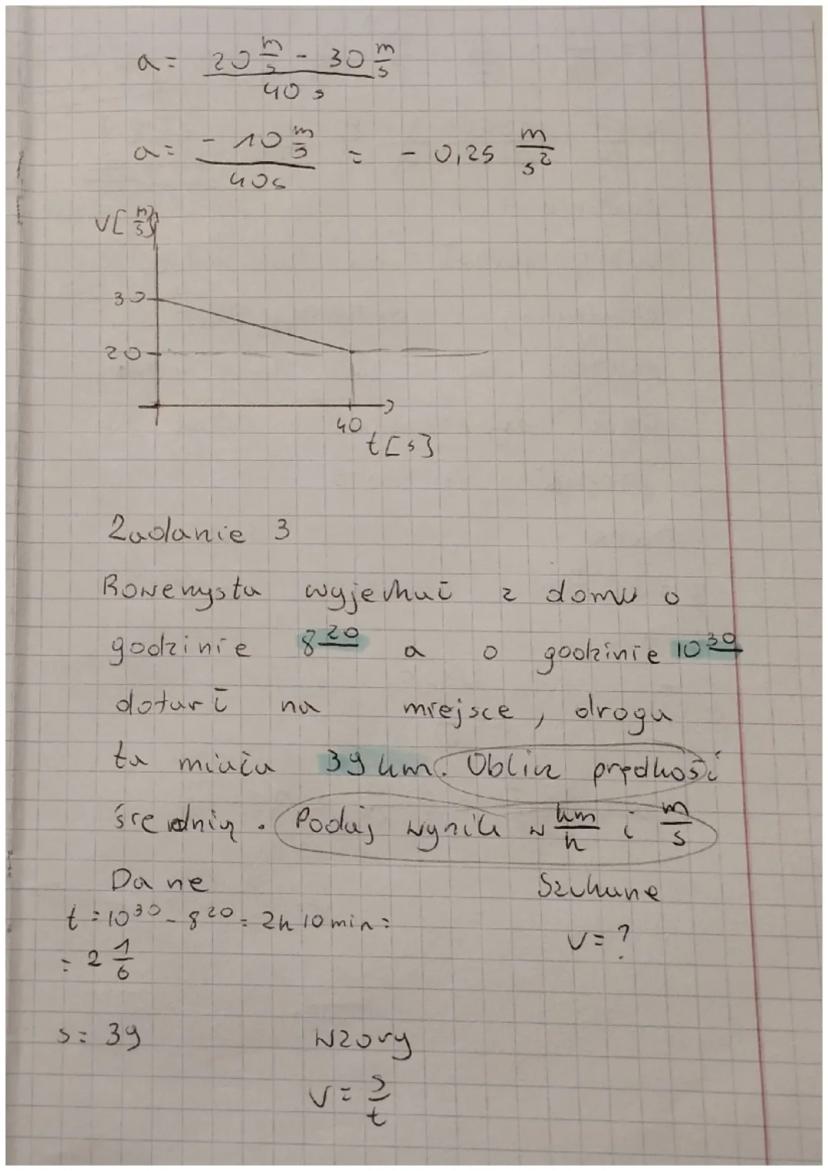 a = \frac{20 \frac{m}{s} - 30 \frac{m}{s}}{40 s}
a = \frac{-10 \frac{m}{s}}{40s} = -0,25 \frac{m}{s^2}
V[\frac{m}{s}]
30
20
40
t[s]
Zadanie 3
Rowerzysta wyjechał z domu o
godzinie 8^{20} a o godzinie 10^{30}
dotarł na miejsce, droga
ta miała 39 km. Oblicz prędkość
średnią. Podaj wynik w \frac{km}{h} i \frac{m}{s}
Dane Szukane
t = 10^{30} - 8^{20} = 2h 10min =
= 2 \frac{1}{6}
V = ?
s = 39
Wzory
V = \frac{s}{t}